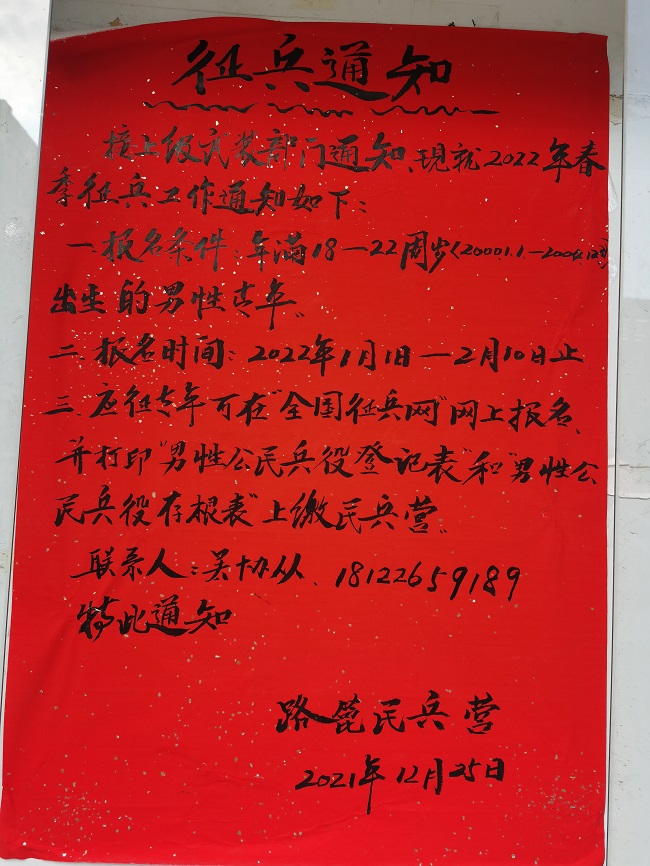 征兵通知
接上级武装部门通知、现就2022年春
季征兵工作通知如下:
一.报名条件:年满18—22周岁(2000.1.1—2004.12.31)
出生的男性青年。
二.报名时间:2022年1月1日—2月10日止
三.应征青年可在"全国征兵网"网上报名、
并打印"男性公民兵役登记表"和"男性公
民兵役存根表"上缴民兵营。
联系人:吴协从、18122659189
特此通知
路篦民兵营
2021年12月25日